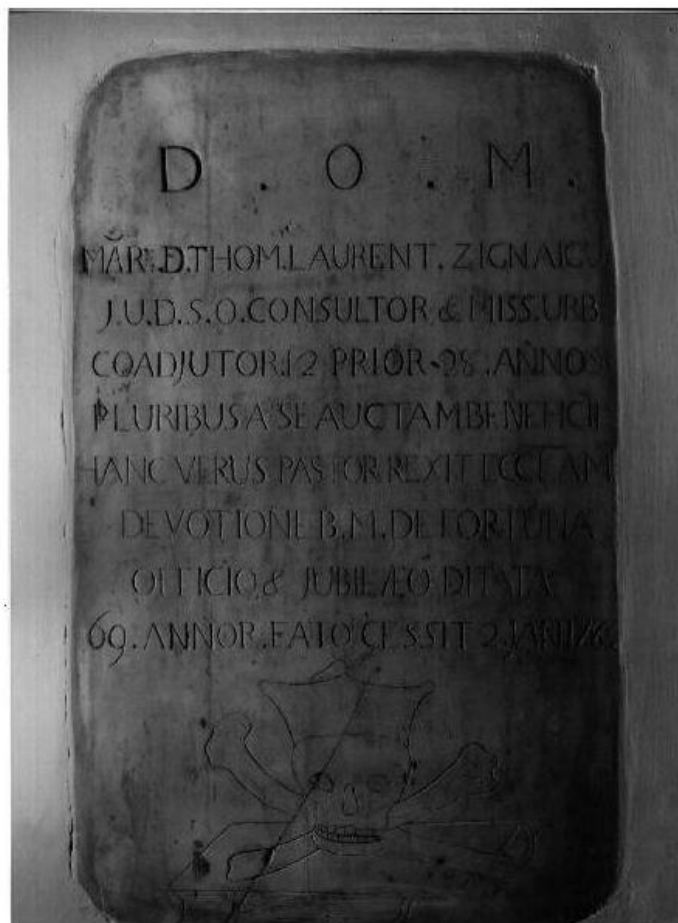 D . O . M .
MĀR. D. THOM. LAURENT. ZIGNAIGU
J.U.D.S.O. CONSULTOR & MISS. URB
COADJUTOR. 12 PRIOR. 28. ANNOS
PLURIBUS A SE AUCTAM BENEFICII
HANC VERUS PASTOR REXIT ECCL'AM
DEVOTIONE B.M. DE FORTUNA
OFFICIO & JUBILÆO DITATA
69. ANNOR. FATO CESSIT 2. JAN